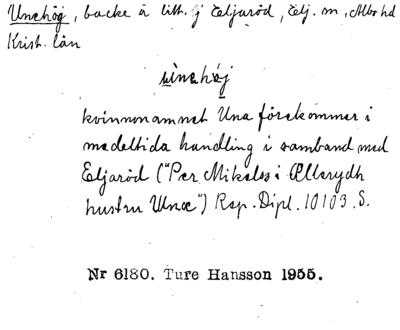 Unehög, backe å litt. j Eljaröd, Elj. sn, Albo hd
Krist. län
ùnehǿj
kvinnonamnet Una förekommer i
medeltida handling i samband med
Eljaröd ("Per Mikelss i Ællerydh
hustru Unæ") Rep. Dipl. 10103. S.
Nr 6180. Ture Hansson 1955.